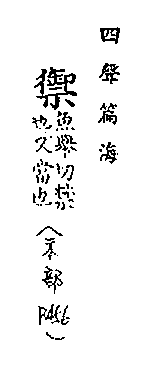 四聲篇海
禦
魚舉切禁
也又當也
（本部
P456）